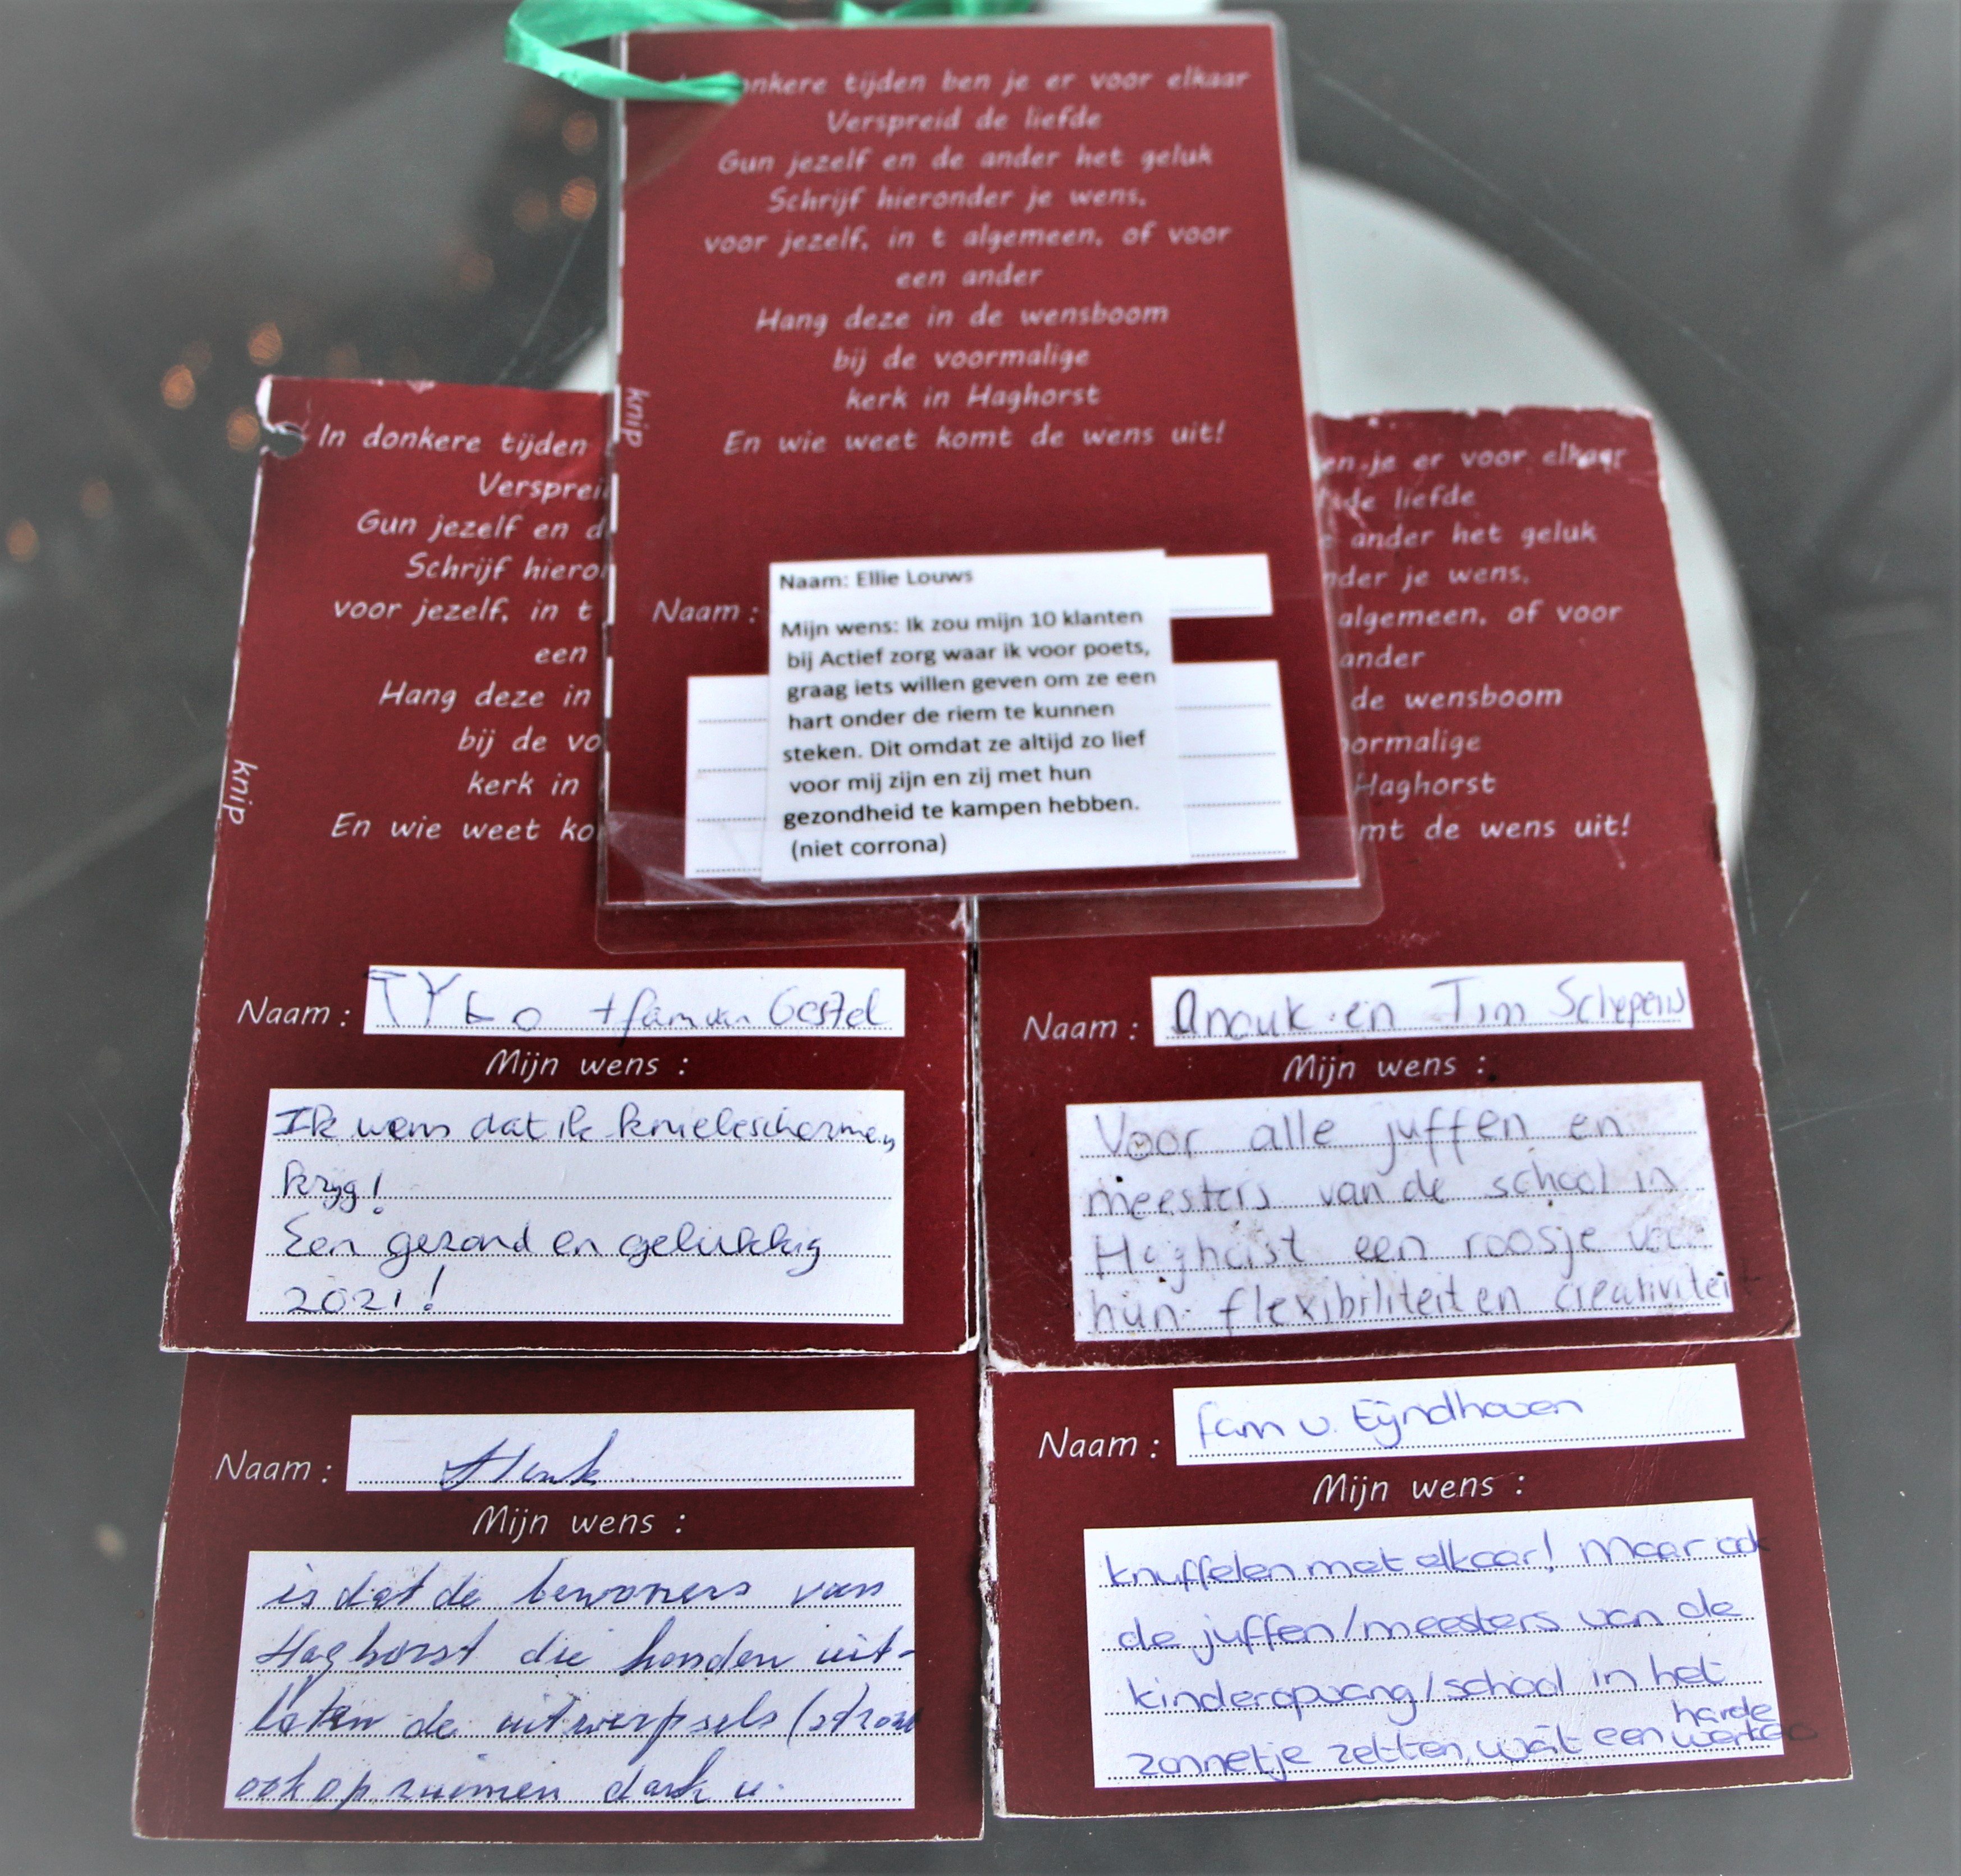 onkere tijden ben je er voor elkaar
Verspreid de liefde
Gun jezelf en de ander het geluk
Schrijf hieronder je wens,
voor jezelf, in t algemeen, of voor
een ander
Hang deze in de wensboom
bij de voormalige
kerk in Haghorst
En wie weet komt de wens uit!
knip
Naam :
Naam: Ellie Louws
Mijn wens: Ik zou mijn 10 klanten
bij Actief zorg waar ik voor poets,
graag iets willen geven om ze een
hart onder de riem te kunnen
steken. Dit omdat ze altijd zo lief
voor mij zijn en zij met hun
gezondheid te kampen hebben.
(niet corrona)
In donkere tijden
Verspreid
Gun jezelf en d
Schrijf hieron
voor jezelf, in t
een
Hang deze in
bij de vo
kerk in
En wie weet ko
knip
Naam : TYGO + fam van Gestel
Mijn wens :
Ik wens dat ik kniebeschermers
krijg!
Een gezond en gelukkig
2021!
en je er voor elkaar
de liefde
ander het geluk
nder je wens,
algemeen, of voor
ander
de wensboom
oormalige
Haghorst
mt de wens uit!
Naam : Anouk en Tim Schepens
Mijn wens :
Voor alle juffen en
meesters van de school in
Haghorst een roosje voor
hun flexibiliteit en creativiteit
Naam : Henk
Mijn wens :
is dat de bewoners van
Haghorst die honden uit-
laten de uitwerpsels
ook op ruimen dank u.
Naam : fam v. Eijndhoven
Mijn wens :
knuffelen met elkaar! Maar ook
de juffen/meesters van de
kinderopvang/school in het
zonnetje zetten, wat een harde werkers